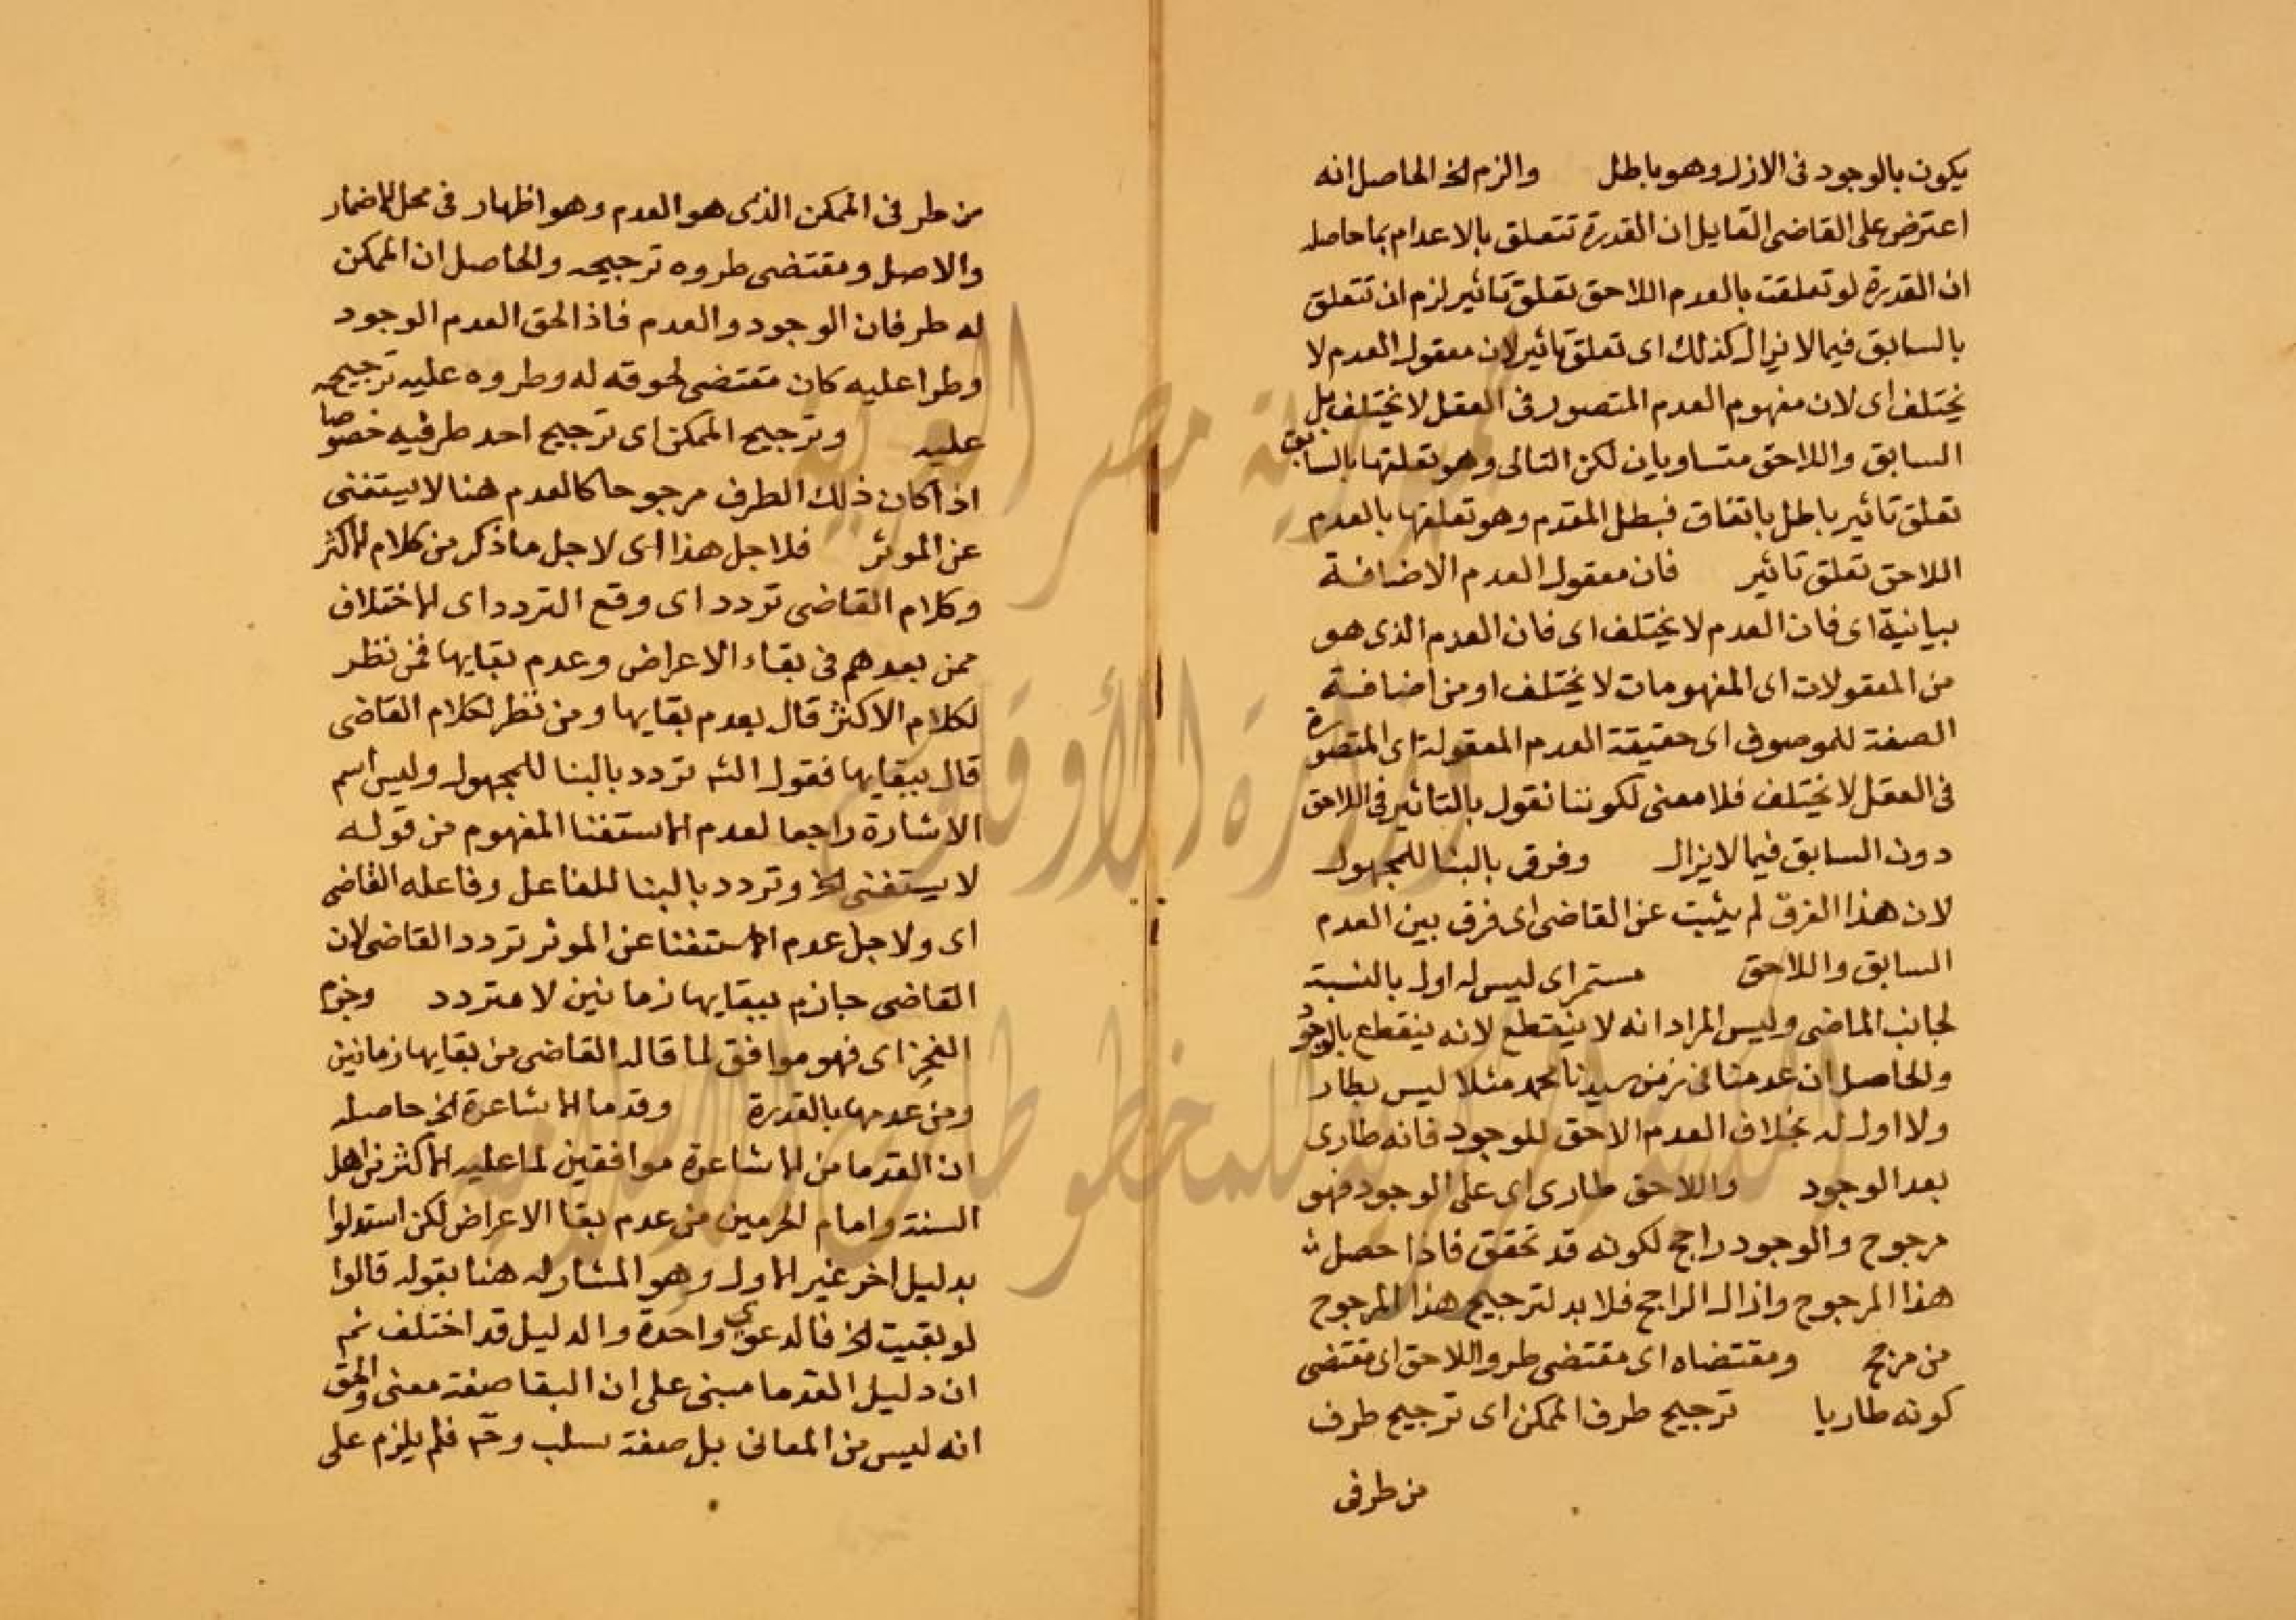 يكون بالوجود فى الازل وهو باطل والزم الخ الحاصل انه
اعترض على القاضى القايل ان القدرة تتعلق بالاعدام بما حاصله
ان القدرة لو تعلقت بالعدم اللاحق تعلق تاثير لزم ان تتعلق
بالسابق فيما لا يزال كذلك اى تعلق تاثير لان معقول العدم لا
يختلف اى لان مفهوم العدم المتصور فى العقل لا يختلف بل
السابق واللاحق متساويان لكن التالى وهو تعلقها بالسابق
تعلق تاثير باطل باتفاق فبطل المقدم وهو تعلقها بالعدم
اللاحق تعلق تاثير فان معقول العدم الاضافة
بيانية اى فان العدم لا يختلف اى فان العدم الذى هو
من المعقولات اى المفهومات لا يختلف او من اضافة
الصفة للموصوف اى حقيقة العدم المعقولة اى المتصورة
فى العقل لا يختلف فلا معنى لكوننا نقول بالتاثير فى اللاحق
دون السابق فيما لا يزال وفرق بالبنا للمجهول
لان هذا الفرق لم يثبت عن القاضى اى فرق بين العدم
السابق واللاحق مستمر اى ليس له اول بالنسبة
لجانب الماضى وليس المراد انه لا ينقطع لانه ينقطع بالوجود
والحاصل ان عدمنا فى زمن سيدنا محمد مثلا ليس بطار
ولا اول له بخلاف العدم الاحق للموجود فانه طارى
بعد الوجود واللاحق طارى اى على الوجود فهو
مرجوح والوجود راجح لكونه قد تحقق فاذا حصل
هذا المرجوح وازال الراجح فلا بد لترجيح هذا المرجوح
من مرجح ومقتضاه اى مقتضى طرو اللاحق اى مقتضى
كونه طاريا ترجيح طرف الممكن اى ترجيح طرف
من طرفى
من طرفى الممكن الذى هو العدم وهو اظهار فى محل الاضمار
والاصل ومقتضى طروه ترجيحه والحاصل ان الممكن
له طرفان الوجود والعدم فاذا لحق العدم الوجود
وطرا عليه كان مقتضى لحوقه له وطروه عليه ترجيحه
عليه وترجيح الممكن اى ترجيح احد طرفيه خصوصا
اذا كان ذلك الطرف مرجوحا كالعدم هنا لا يستغنى
عن الموثر فلاجل هذا اى لاجل ما ذكر من كلام الاكثر
وكلام القاضى تردد اى وقع التردد اى الاختلاف
ممن بعدهم فى بقاء الاعراض وعدم بقايها فمن نظر
لكلام الاكثر قال بعدم بقايها ومن نظر لكلام القاضى
قال ببقايها فقول الشه تردد بالبنا للمجهول وليس اسم
الاشارة راجعا لعدم الاستغنا المفهوم من قوله
لا يستغنى الخ وتردد بالبنا للفاعل وفاعله القاضى
اى ولاجل عدم الاستغنا عن الموثر تردد القاضى لان
القاضى جازم ببقايها زمانين لا متردد وجزم
الفخر اى فهو موافق لما قاله القاضى من بقايها زمانين
ومن عدمها بالقدرة وقدما الاشاعرة الخ حاصله
ان القدما من الاشاعرة موافقين لما عليه الاكثر من اهل
السنة وامام الحرمين من عدم بقا الاعراض لكن استدلوا
بدليل اخر غير الاول وهو المشار له هنا بقوله قالوا
لو بقيت الخ فالدعوى واحدة والدليل قد اختلف ثم
ان دليل القدما مبنى على ان البقا صفة معنى والحق
انه ليس من المعانى بل صفة سلب وح فلم يلزم على